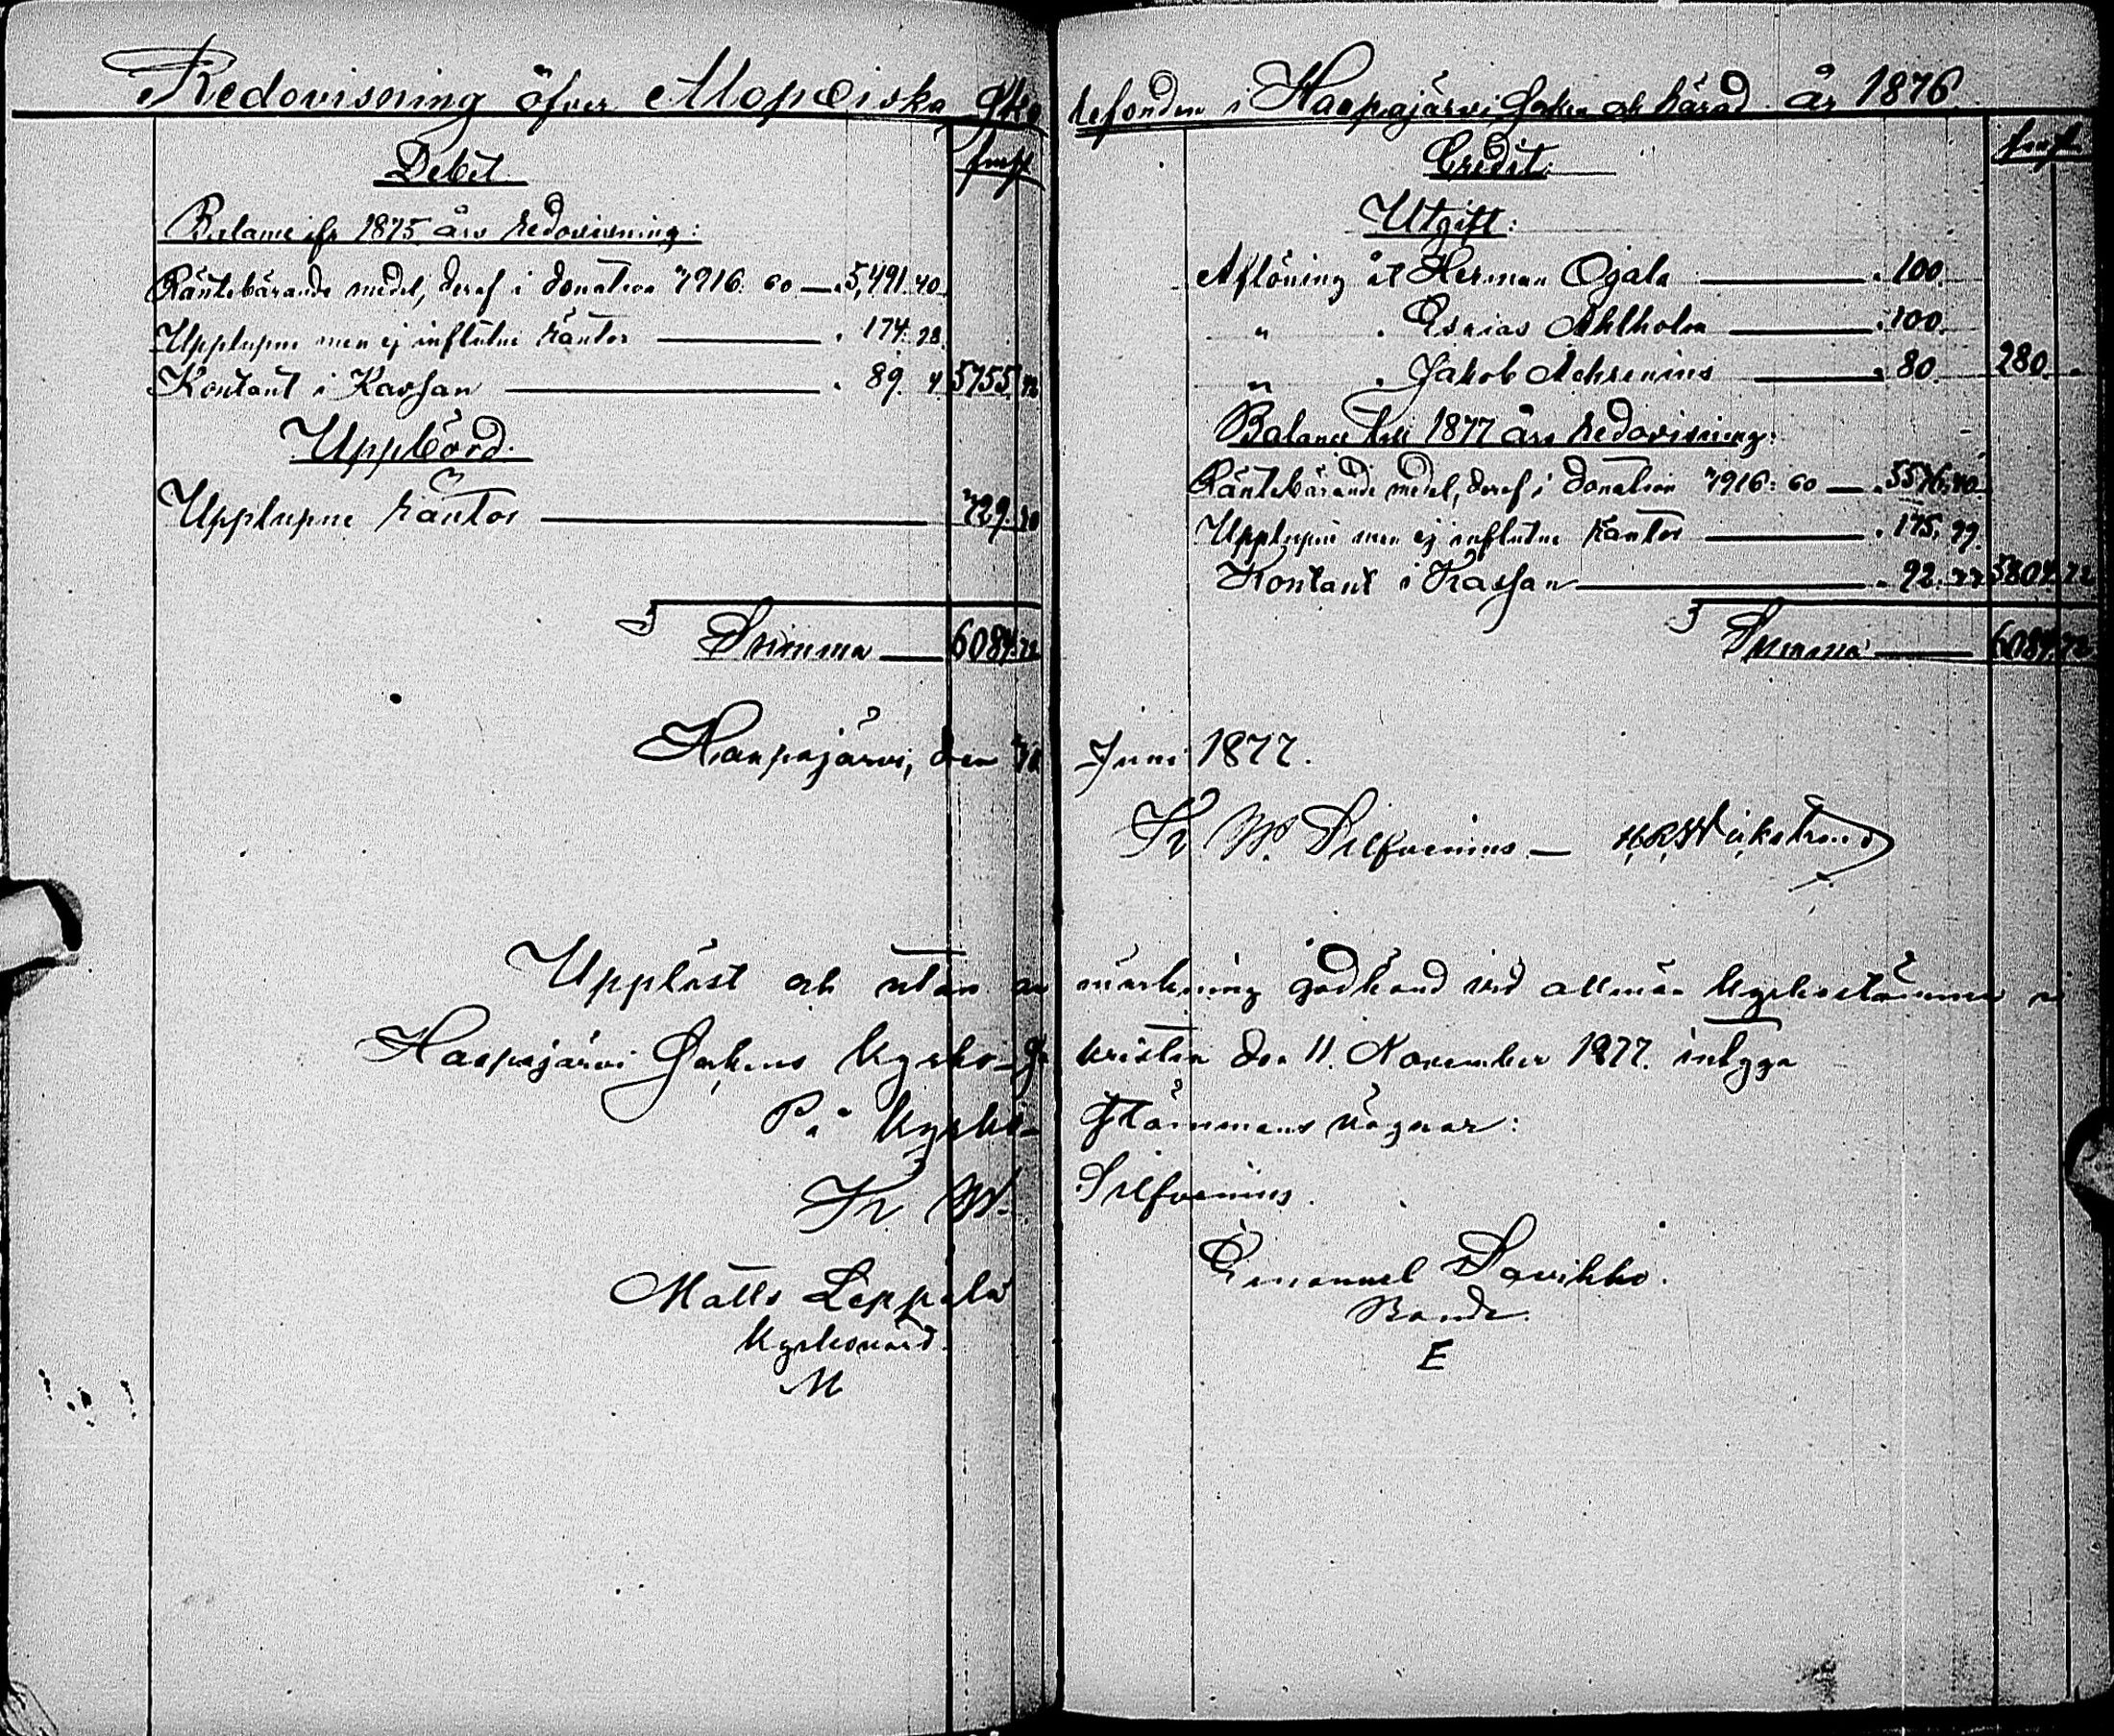 Redovisning öfver Alopæiska Skolefonden i Haapajärvi Socken och härad år 1876.
Debet.
Balance ifr 1875 års redovisning:
Räntebärande medel, deraf i donation 7916: 60 — 5,491 40
Upplupne men ej influtne räntor — 174. 28.
Kontant i Kassan — 89. 4 5755 72
Uppbörd.
Upplupne räntor — 329.
Summa — 6084. 72
Credit:
Utgift:
Aflöning åt Herman Ojala — 100.
" " Esaias Ahlholm — 100.
" " Jakob Achrenius — 80. 280. -
Balance till 1877 års redovisning:
Räntebärande medel, deraf i donation 7916: 60 — 5536: 40
Upplupne men ej influtne räntor — 175. 99.
Kontant i Kassan — 92. 33 5804. 72
Summa — 6084. 72
Haapajärvi, den Juni 1877.
Fr. W. Silfvenius. — H. R. Wickstrand
Uppläst och utan anmärkning godkänd vid allmän kyrkostämma i
Haapajärvi Sockens kyrko- den 11. November 1877. intyga
På kyrko- stämmans vägnar:
Fr. W. Silfvenius.
Matts Leppälä
Kyrkovärd.
M
Emanuel Savikko.
Bonde.
E